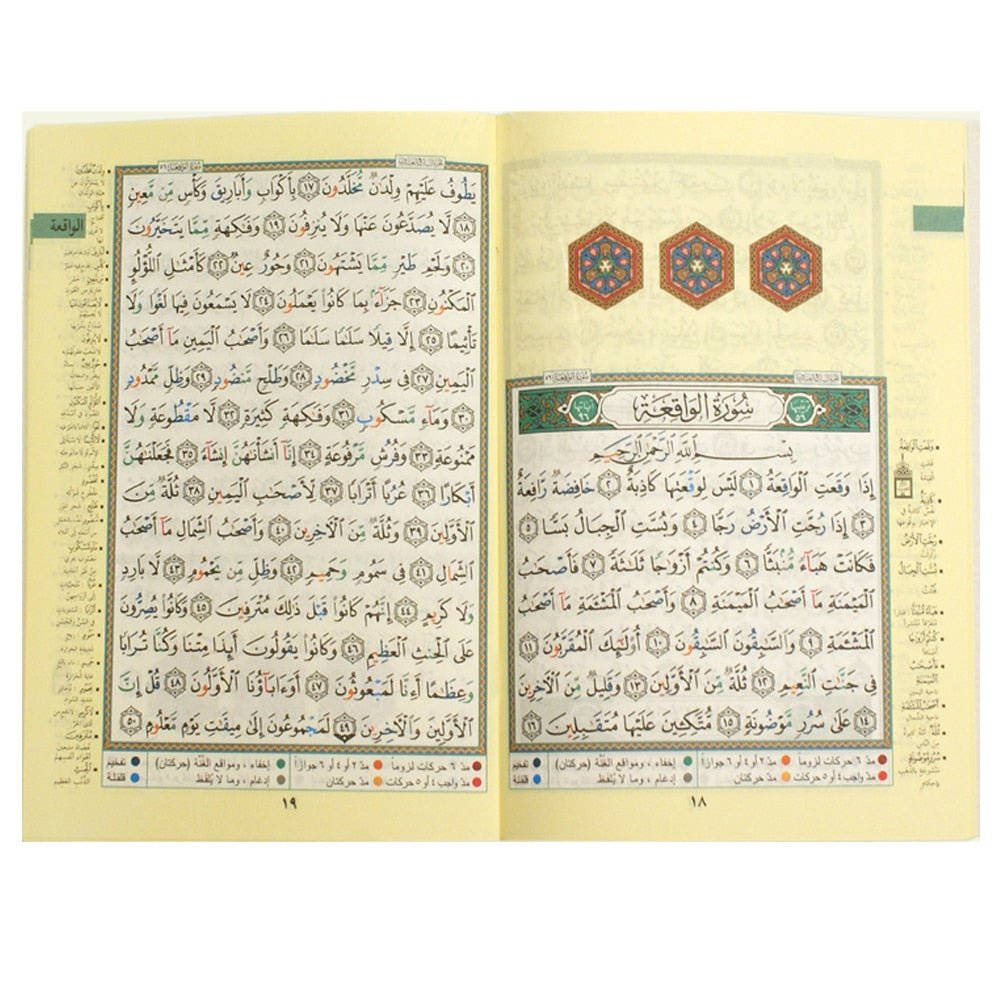 سُورَةُ الوَاقِعَة
بِسْمِ ٱللَّهِ ٱلرَّحْمَٰنِ ٱلرَّحِيمِ
إِذَا وَقَعَتِ ٱلْوَاقِعَةُ ١ لَيْسَ لِوَقْعَتِهَا كَاذِبَةٌ ٢ خَافِضَةٌ رَّافِعَةٌ
٣ إِذَا رُجَّتِ ٱلْأَرْضُ رَجًّا ٤ وَبُسَّتِ ٱلْجِبَالُ بَسًّا ٥
فَكَانَتْ هَبَآءً مُّنۢبَثًّا ٦ وَكُنتُمْ أَزْوَٰجًا ثَلَٰثَةً ٧ فَأَصْحَٰبُ
ٱلْمَيْمَنَةِ مَآ أَصْحَٰبُ ٱلْمَيْمَنَةِ ٨ وَأَصْحَٰبُ ٱلْمَشْـَٔمَةِ مَآ أَصْحَٰبُ
ٱلْمَشْـَٔمَةِ ٩ وَٱلسَّٰبِقُونَ ٱلسَّٰبِقُونَ ١٠ أُو۟لَٰٓئِكَ ٱلْمُقَرَّبُونَ ١١
فِى جَنَّٰتِ ٱلنَّعِيمِ ١٢ ثُلَّةٌ مِّنَ ٱلْأَوَّلِينَ ١٣ وَقَلِيلٌ مِّنَ ٱلْءَاخِرِينَ
١٤ عَلَىٰ سُرُرٍ مَّوْضُونَةٍ ١٥ مُّتَّكِـِٔينَ عَلَيْهَا مُتَقَٰبِلِينَ ١٦
مدّ ٦ حركات لزوماً مدّ ٢ أو ٤ أو ٦ جوازاً إخفاء ، ومواقع الغُنَّة (حركتان) تفخيم
مدّ واجب ٤ أو ٥ حركات مدّ حركتان إدغام ، وما لا يُلفَظ قلقلة
١٨
الواقعة
يَطُوفُ عَلَيْهِمْ وِلْدَٰنٌ مُّخَلَّدُونَ ١٧ بِأَكْوَابٍ وَأَبَارِيقَ وَكَأْسٍ مِّن مَّعِينٍ
١٨ لَّا يُصَدَّعُونَ عَنْهَا وَلَا يُنزِفُونَ ١٩ وَفَٰكِهَةٍ مِّمَّا يَتَخَيَّرُونَ
٢٠ وَلَحْمِ طَيْرٍ مِّمَّا يَشْتَهُونَ ٢١ وَحُورٌ عِينٌ ٢٢ كَأَمْثَٰلِ ٱللُّؤْلُؤِ
ٱلْمَكْنُونِ ٢٣ جَزَآءًۢ بِمَا كَانُوا۟ يَعْمَلُونَ ٢٤ لَا يَسْمَعُونَ فِيهَا لَغْوًا وَلَا
تَأْثِيمًا ٢٥ إِلَّا قِيلًا سَلَٰمًا سَلَٰمًا ٢٦ وَأَصْحَٰبُ ٱلْيَمِينِ مَآ أَصْحَٰبُ
ٱلْيَمِينِ ٢٧ فِى سِدْرٍ مَّخْضُودٍ ٢٨ وَطَلْحٍ مَّنضُودٍ ٢٩ وَظِلٍّ مَّمْدُودٍ
٣٠ وَمَآءٍ مَّسْكُوبٍ ٣١ وَفَٰكِهَةٍ كَثِيرَةٍ ٣٢ لَّا مَقْطُوعَةٍ وَلَا
مَمْنُوعَةٍ ٣٣ وَفُرُشٍ مَّرْفُوعَةٍ ٣٤ إِنَّآ أَنشَأْنَٰهُنَّ إِنشَآءً ٣٥ فَجَعَلْنَٰهُنَّ
أَبْكَارًا ٣٦ عُرُبًا أَتْرَابًا ٣٧ لِّأَصْحَٰبِ ٱلْيَمِينِ ٣٨ ثُلَّةٌ مِّنَ
ٱلْأَوَّلِينَ ٣٩ وَثُلَّةٌ مِّنَ ٱلْءَاخِرِينَ ٤٠ وَأَصْحَٰبُ ٱلشِّمَالِ مَآ أَصْحَٰبُ
ٱلشِّمَالِ ٤١ فِى سَمُومٍ وَحَمِيمٍ ٤٢ وَظِلٍّ مِّن يَحْمُومٍ ٤٣ لَّا بَارِدٍ
وَلَا كَرِيمٍ ٤٤ إِنَّهُمْ كَانُوا۟ قَبْلَ ذَٰلِكَ مُتْرَفِينَ ٤٥ وَكَانُوا۟ يُصِرُّونَ
عَلَى ٱلْحِنثِ ٱلْعَظِيمِ ٤٦ وَكَانُوا۟ يَقُولُونَ أَئِذَا مِتْنَا وَكُنَّا تُرَابًا
وَعِظَٰمًا أَءِنَّا لَمَبْعُوثُونَ ٤٧ أَوَءَابَآؤُنَا ٱلْأَوَّلُونَ ٤٨ قُلْ إِنَّ
ٱلْأَوَّلِينَ وَٱلْءَاخِرِينَ ٤٩ لَمَجْمُوعُونَ إِلَىٰ مِيقَٰتِ يَوْمٍ مَّعْلُومٍ ٥٠
مدّ ٦ حركات لزوماً مدّ ٢ أو ٤ أو ٦ جوازاً إخفاء ، ومواقع الغُنَّة (حركتان) تفخيم
مدّ واجب ٤ أو ٥ حركات مدّ حركتان إدغام ، وما لا يُلفَظ قلقلة
١٩